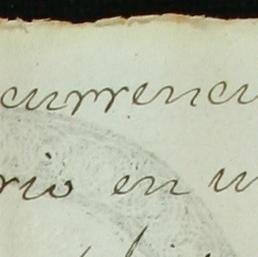 currencu
rio en u